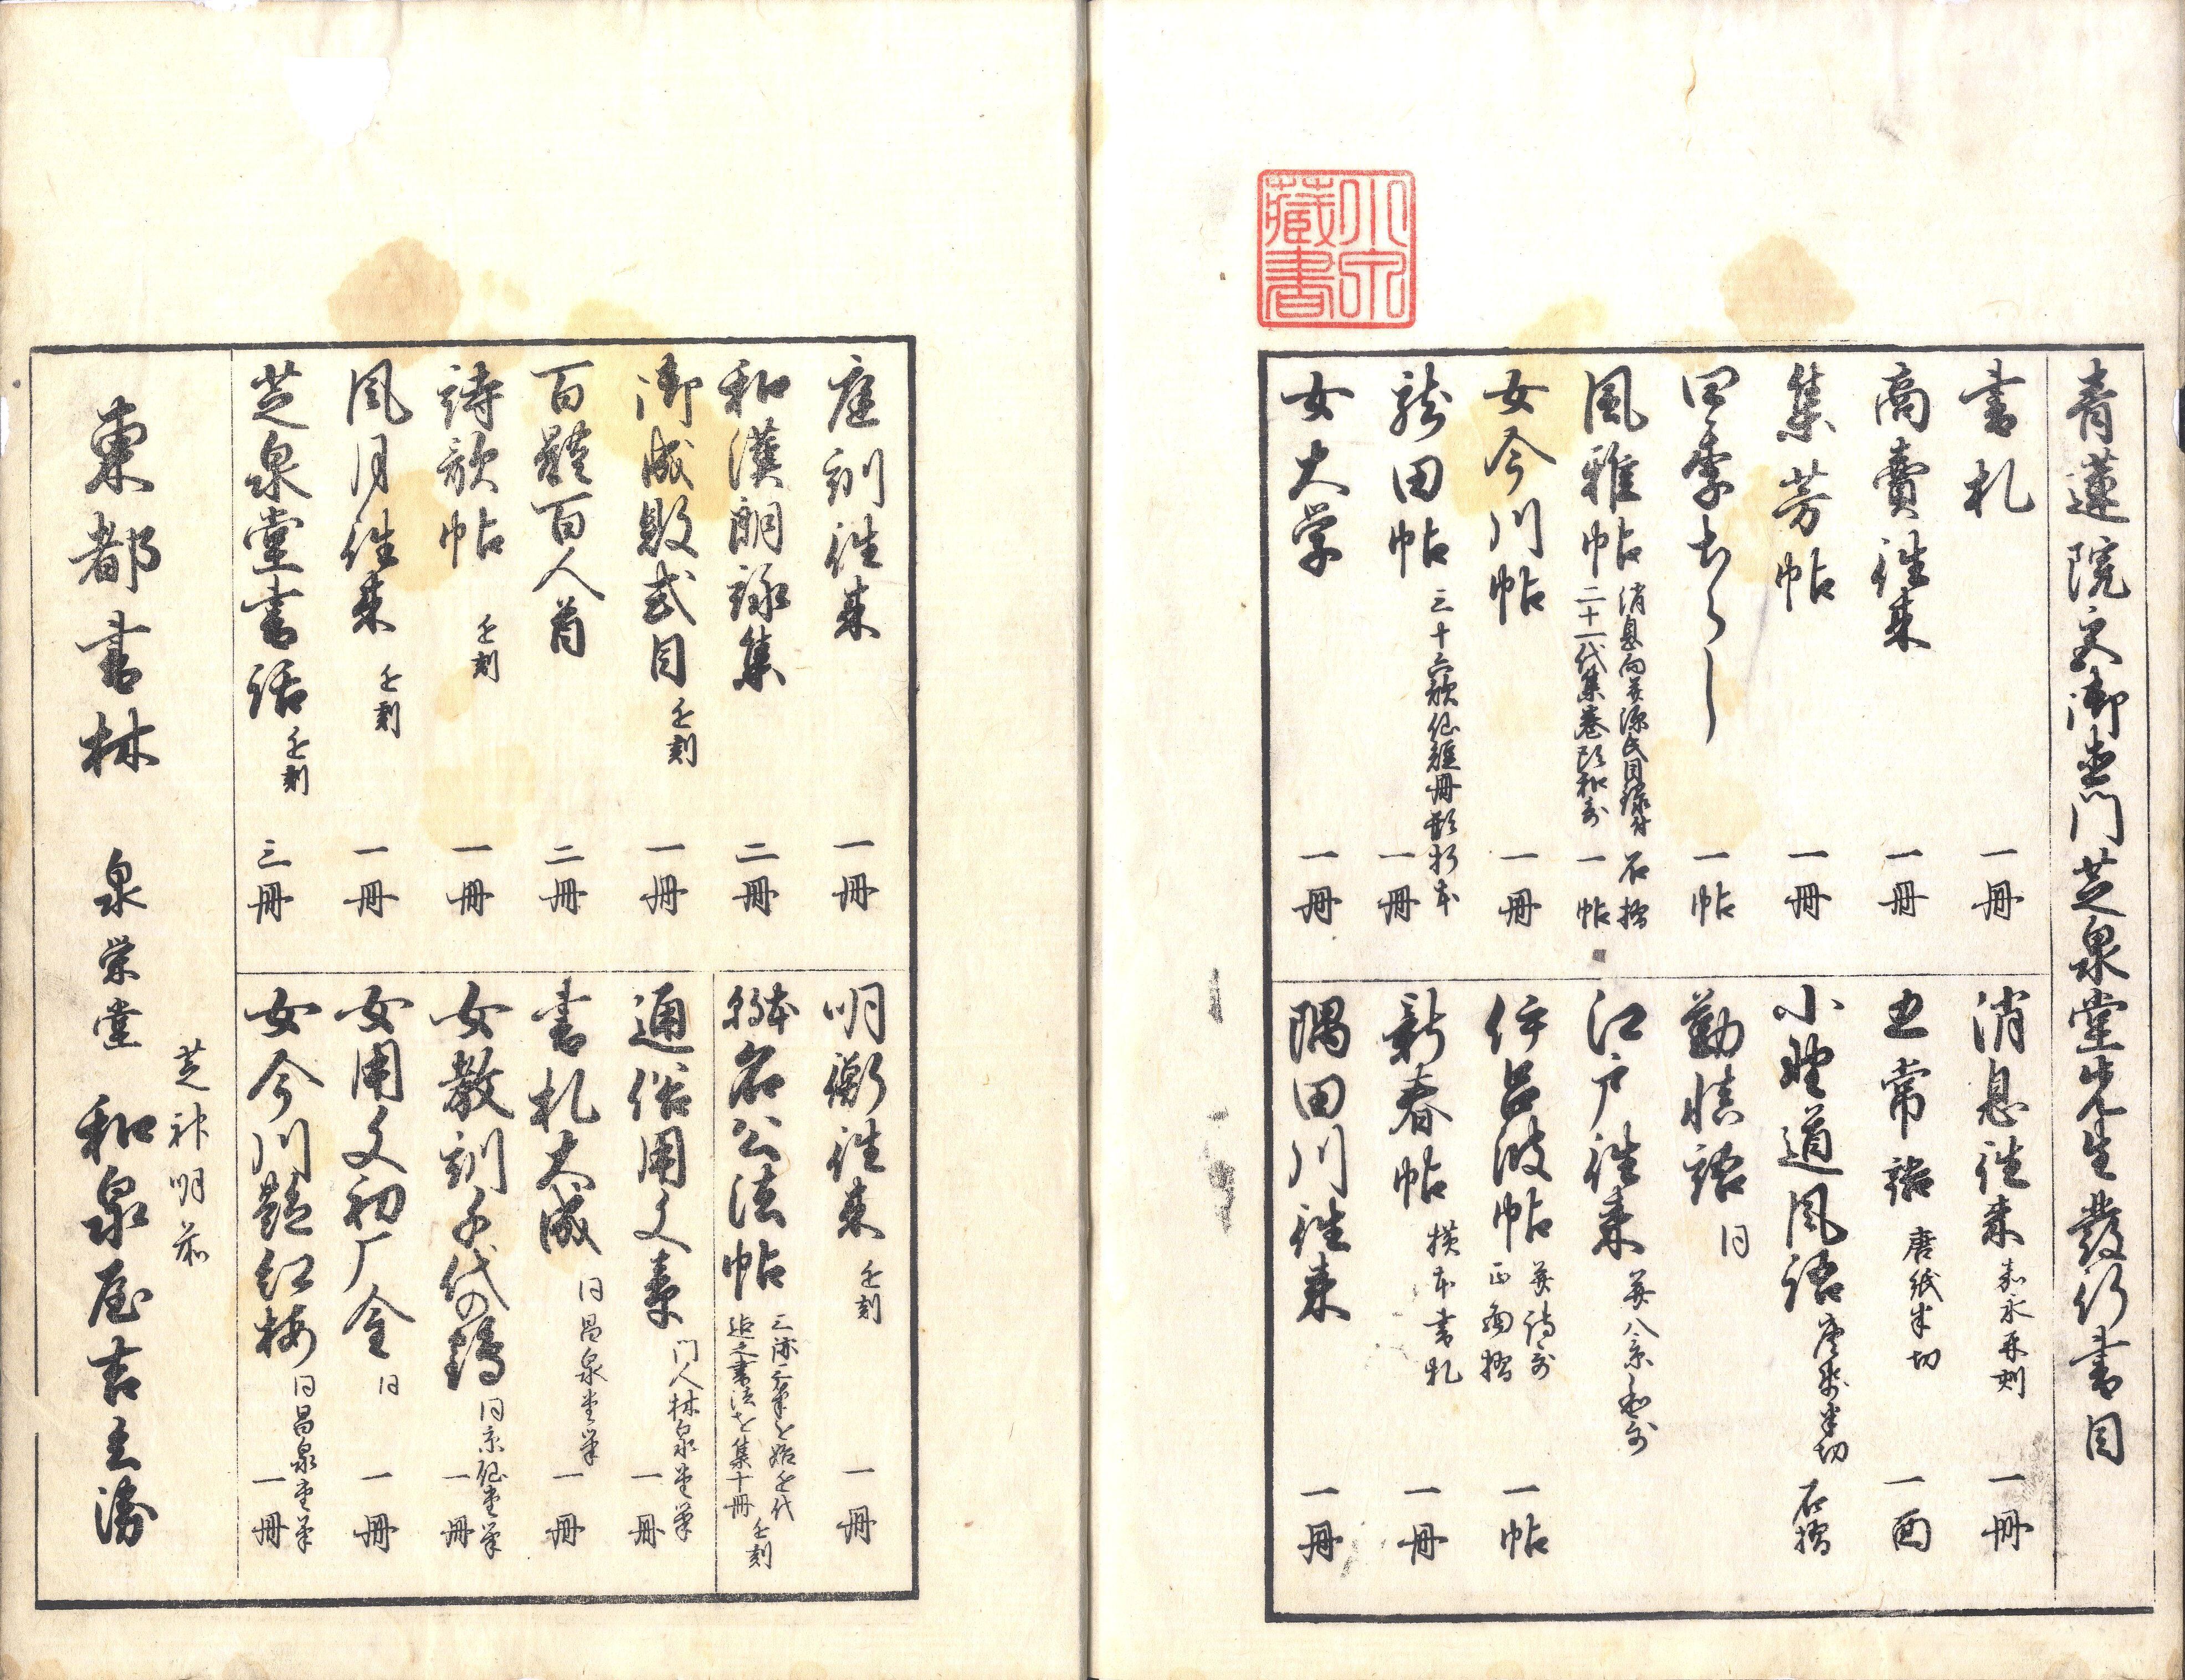 青蓮院宮御門芝泉堂先生發行書目
書札 一冊
商賣往来 一冊
集芳帖 一冊
四季
一帖
風雅帖 消息向并源氏目録付 石摺
二十一代集巻頭和歌 一帖
女今川帖 一冊
龍田帖 三十六歌仙短冊形折本 一冊
女大学 一冊
消息往来 嘉永再刻 一冊
五常語 唐紙半切 一面
小野道風語 唐紙半切 石摺
勤慎語 同
江戸往来 并八景和歌
伊呂波帖 并詩歌 正面摺 一帖
新春帖 横本書札 一冊
隅田川往来 一冊
小泉藏書
庭訓往来 一冊
和漢朗詠集 二冊
御成敗式目 近刻 一冊
百體百人首 二冊
詩歌帖 近刻 一冊
風月往来 近刻 一冊
芝泉堂書話 近刻 三冊
明衡往来 近刻 一冊
名公法帖 三跡三筆を始近代
迄之書法を集 十冊 近刻
通俗用文章 門人林泉堂筆 一冊
書札大成 同昌泉堂筆 一冊
女教訓千代の鶴 同京経堂筆 一冊
女用文初厂金 同 一冊
女今川艶紅梅 同昌泉堂筆 一冊
東都書林 泉栄堂
芝神明前
和泉屋吉兵衛